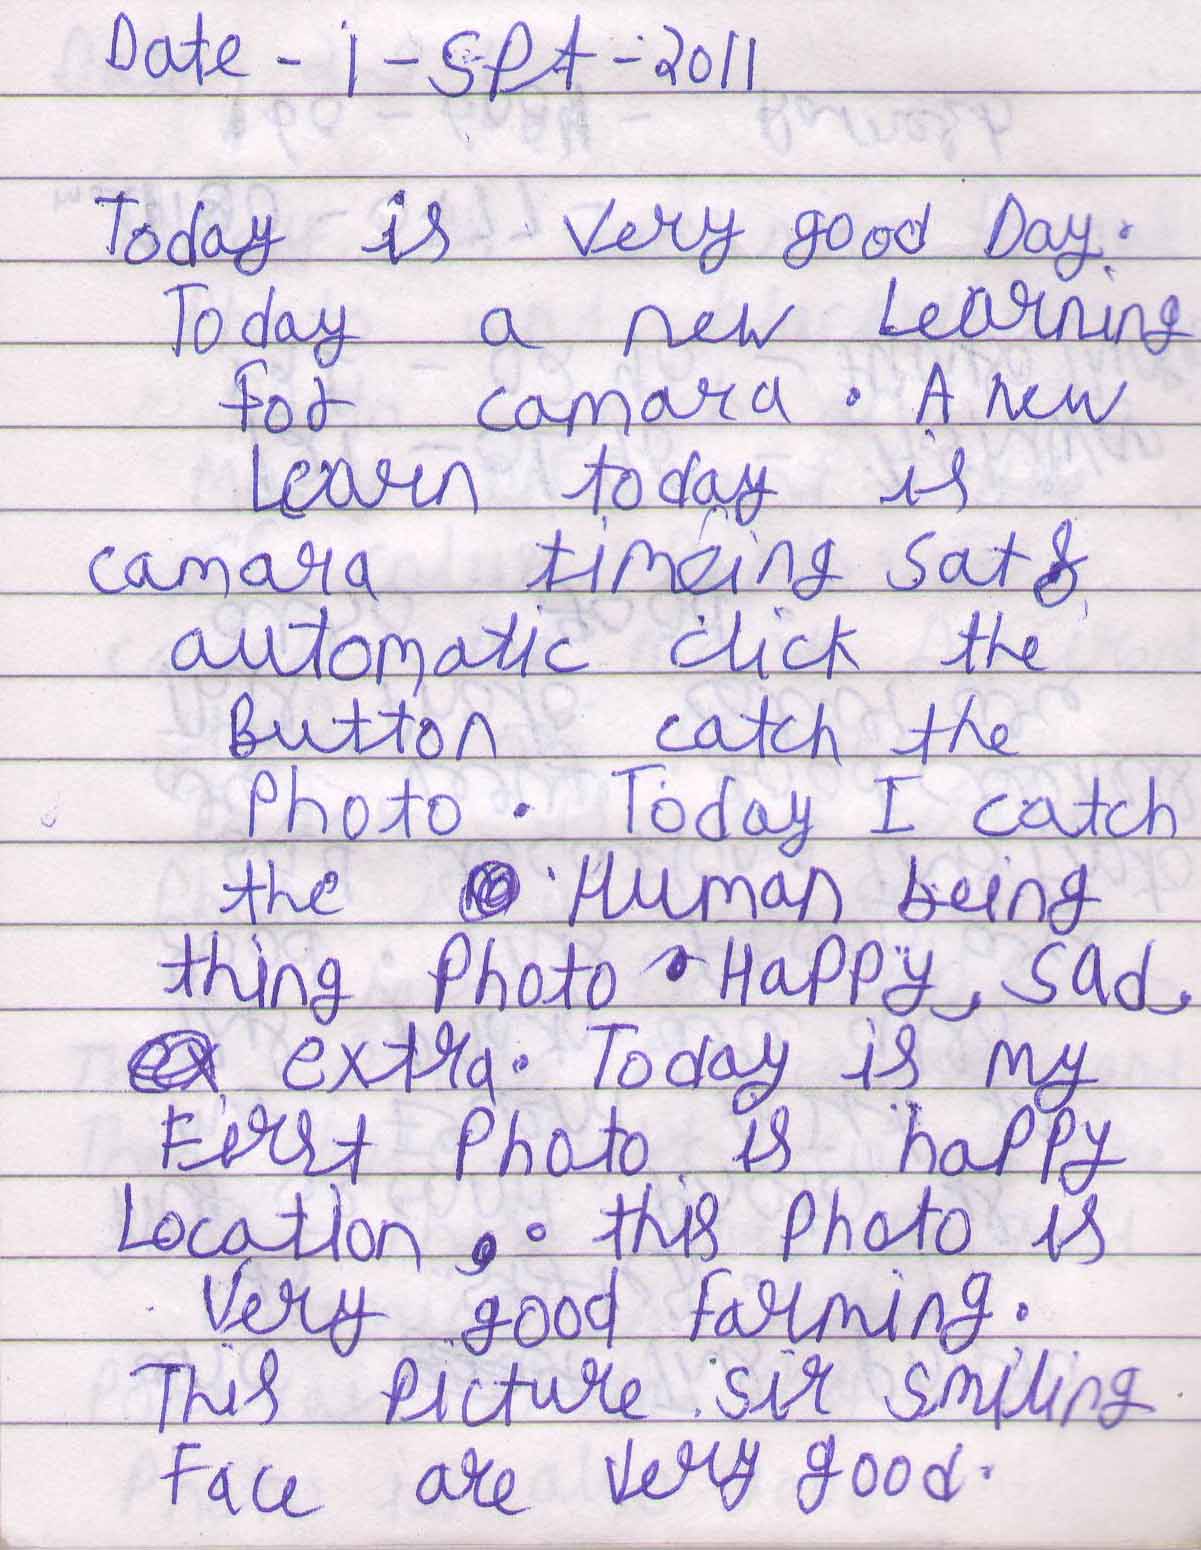 Date - 1 - SPt - 2011
Today is Very good Day.
Today a new Learning
For camara . A new
Learn today is
camara timeing Sat &
automatic click the
Button catch the
Photo . Today I catch
the Human being
thing Photo . Happy, Sad,
extra. Today is my
First Photo is happy
Location, . this Photo is
Very good Farming.
This Picture sir smiling
Face are very good.